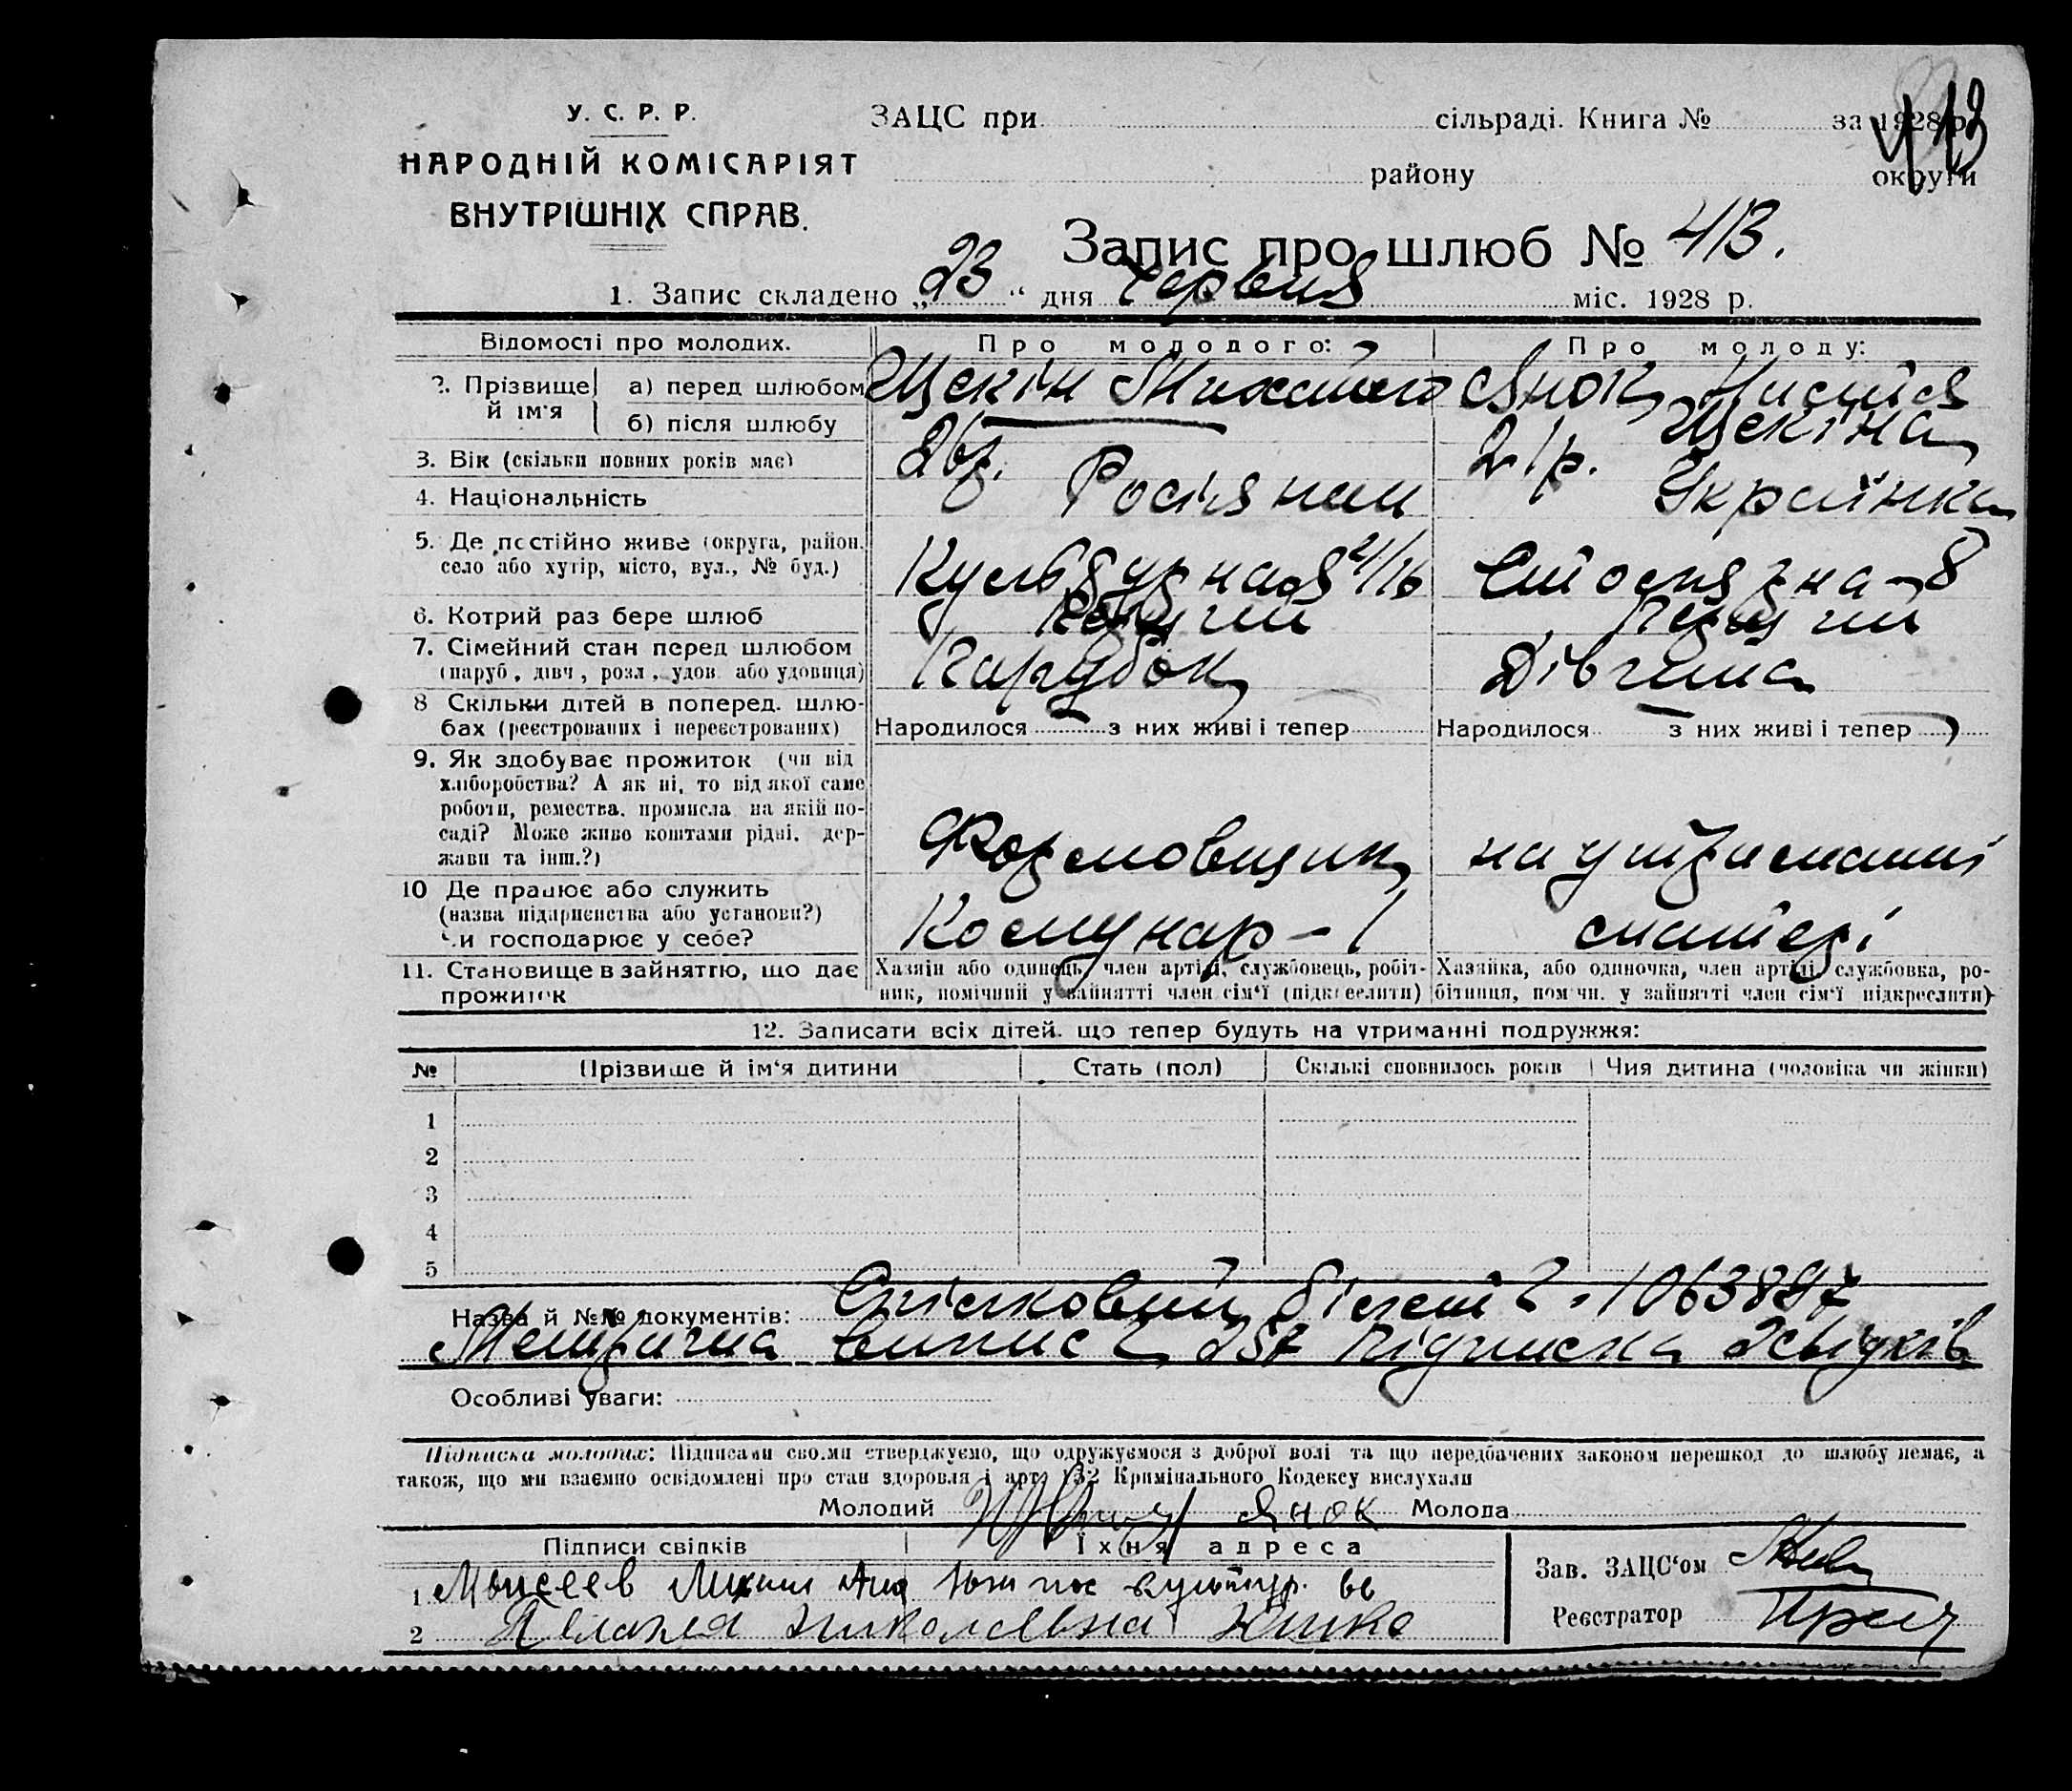 413
У. С. Р. Р.
НАРОДНІЙ КОМІСАРІЯТ
ВНУТРІШНІХ СПРАВ.
ЗАЦС при сільраді. Книга № за 1928 р.
району округи
Запис про шлюб № 413.
1. Запис складено „23“ дня Червня міс. 1928 р.
Відомості про молодих.
Про молодого:
Про молоду:
2. Прізвище й ім'я
а) перед шлюбом
Щекін Михайло
Янок Настя
б) після шлюбу
Щекіна
3. Вік (скільки повних років має)
26р.
21р.
4. Національність
Росіянин
Українка
5. Де постійно живе (округа, район, село або хутір, місто, вул., № буд.)
6. Котрий раз бере шлюб
Перший
Перший
7. Сімейний стан перед шлюбом
(паруб., дівч., розл., удов. або удовиця)
Парубок
Дівчина
8 Скільки дітей в поперед. шлю-
бах (реєстрованих і нереєстрованих)
Народилося з них живі і тепер
Народилося з них живі і тепер
9. Як здобуває прожиток (чи від
хліборобства? А як ні, то від якої саме
роботи, ремества, промисла на якій по-
саді? Може живе коштами рідні, дер-
жави та інш.?)
Формовщик
на утриманні
10 Де працює або служить
(назва підприємства або установи?)
Чи господарює у себе?
Комунар - 1
матері
11. Становище в зайняттю, що дає
прожиток
Хазяїн або одинець, член артілі, службовець, робіт-
ник, помічний у зайнятті член сім'ї (підкреслити)
Хазяйка, або одиночка, член артілі службовка, ро-
бітниця, пом чн. у зайнятті член сім'ї підкреслити)
12. Записати всіх дітей, що тепер будуть на утриманні подружжя:
№ Прізвище й ім'я дитини Стать (пол) Скількі сповнилось років Чия дитина (чоловіка чи жінки)
1
2
3
4
5
Назва й №№ документів: Спілковий білет 1063897
Метрична випис 257 підписка 2 свідків
Особливі уваги:
Підписка молодих: Підписами своїми стверджуємо, що одружуємося з доброї волі та що передбачених законом перешкод до шлюбу немає, а
також, що ми взаємно освідомлені про стан здоровля і арт. 132 Кримінального Кодексу вислухали
Молодий Янок Молода
Підписи свідків Їхня адреса
1 Моисеев
2 Пелагея Николаевна
Зав. ЗАЦС'ом
Реєстратор